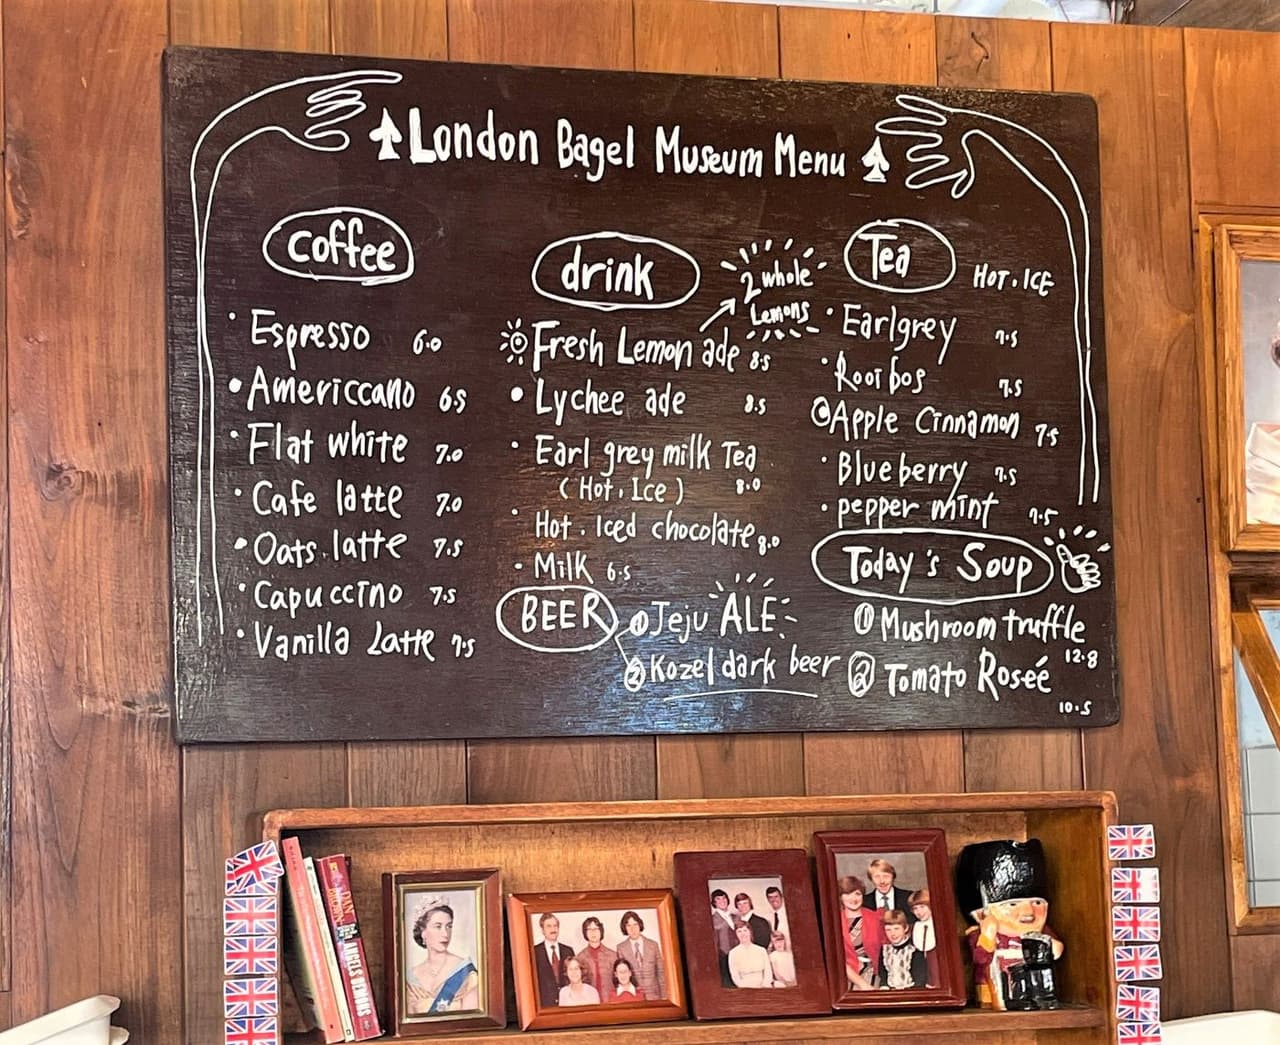 London Bagel Museum Menu
coffee
Espresso 6.0
Americcano 6.5
Flat white 7.0
Cafe latte 7.0
Oats.latte 7.5
Capuccino 7.5
Vanilla Latte 7.5
drink
2 whole
Lemons
Fresh Lemon ade 8.5
Lychee ade 8.5
Earl grey milk Tea
(Hot, Ice) 8.0
Hot. Iced chocolate 8.0
Milk 6.5
BEER
① Jeju ALE
② Kozel dark beer
Tea
HOT. ICE
Earlgrey 7.5
Rooibos 7.5
Apple Cinnamon 7.5
Blueberry 7.5
pepper mint 7.5
Today's Soup
① Mushroom truffle
12.8
② Tomato Roseé
10.5
DAN BROWN
ANGELS DEMONS